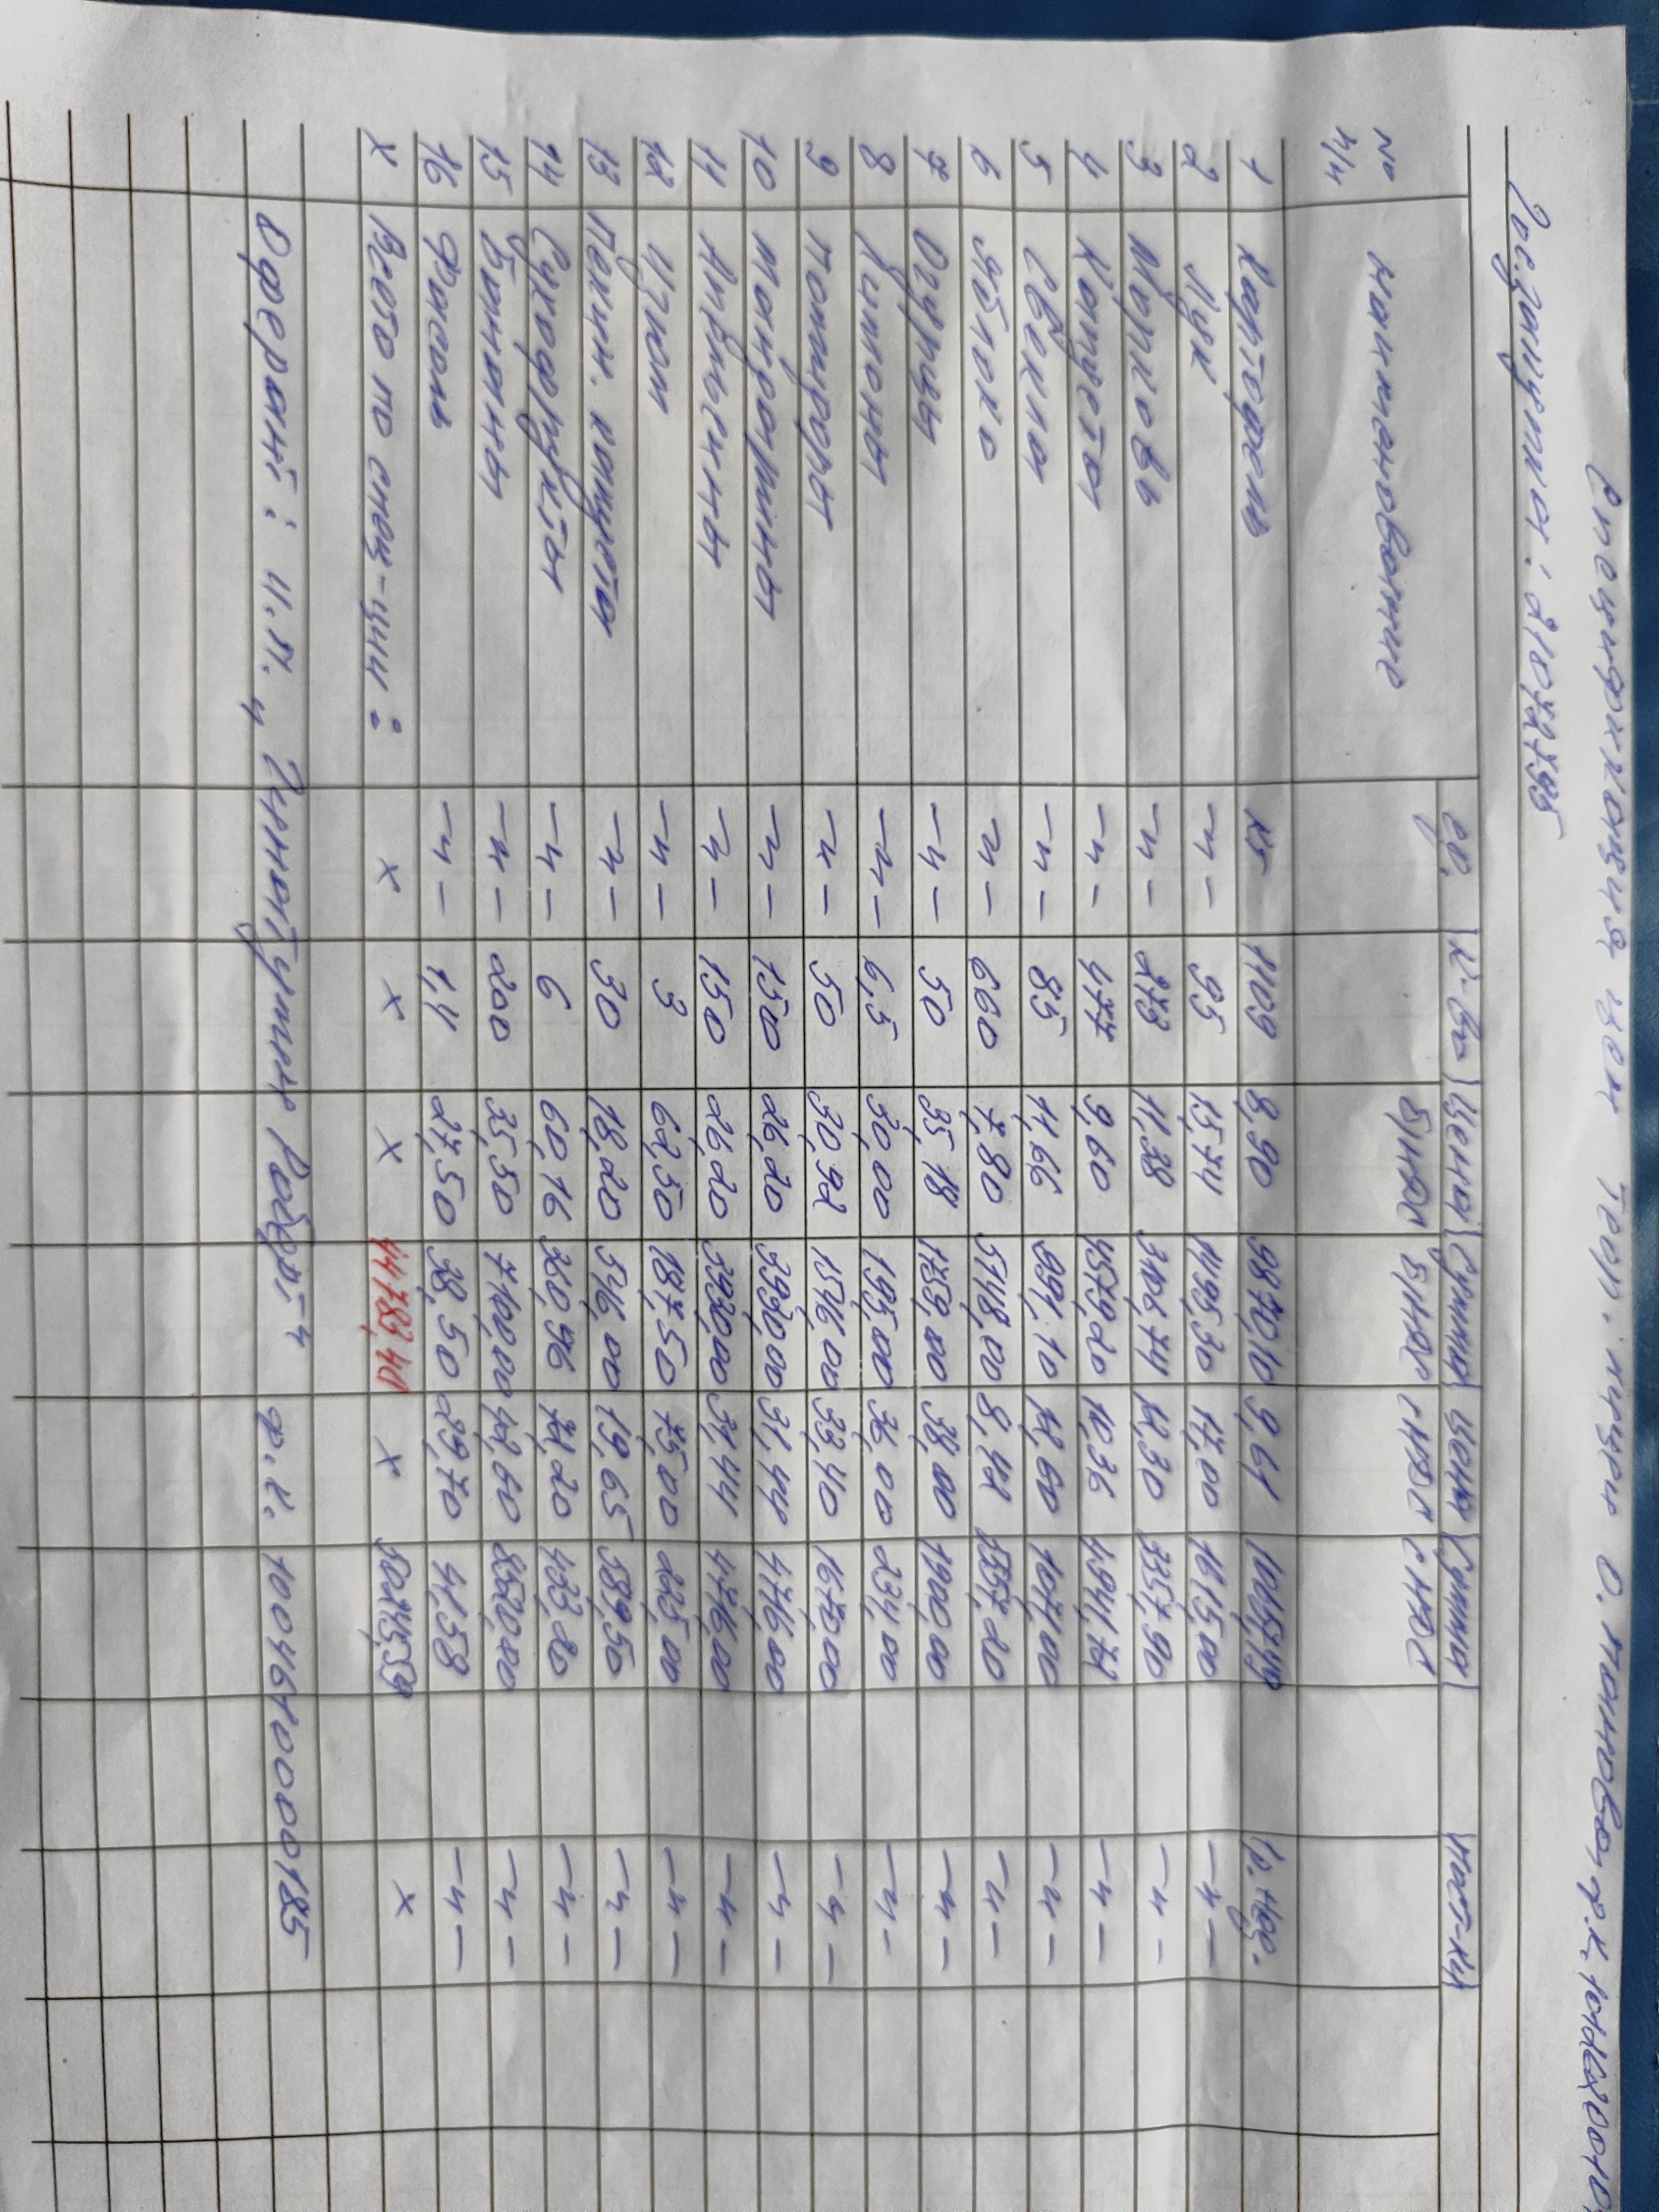 Спецификация на Теор. лицей О. Тановка, ф.к. 1012620010
Гос. закупка: 21042795
№ п/п Наименование ед. к-во Цена без НДС Сумма без НДС Цена с НДС Сумма с НДС пост-ки
1 Картофель кг 1109 8,90 9870,10 9,61 10657,49 1р. нед.
2 Лук -"- 95 15,74 1495,30 17,00 1615,00 -"-
3 Морковь -"- 273 11,38 3106,74 12,30 3357,90 -"-
4 Капуста -"- 477 9,60 4579,20 10,36 4941,72 -"-
5 Свекла -"- 85 11,66 991,10 12,60 1071,00 -"-
6 Яблоко -"- 660 7,80 5148,00 8,42 5557,20 -"-
7 Огурцы -"- 50 35,18 1759,00 38,00 1900,00 -"-
8 Лимоны -"- 6,5 30,00 195,00 36,00 234,00 -"-
9 Помидоры -"- 50 30,92 1546,00 33,40 1670,00 -"-
10 Мандарины -"- 150 26,20 3930,00 31,44 4716,00 -"-
11 Апельсины -"- 150 26,20 3930,00 31,44 4716,00 -"-
12 Изюм -"- 3 62,50 187,50 75,00 225,00 -"-
13 Пекин. капуста -"- 30 18,20 546,00 19,65 589,50 -"-
14 Сухофрукты -"- 6 60,16 360,96 72,20 433,20 -"-
15 Бананы -"- 200 35,50 7100,00 42,60 8520,00 -"-
16 Фасоль -"- 1,4 27,50 38,50 29,70 41,58 -"-
х Всего по спец-ции: х х х 44783,40 х 50245,59 х
Оферант: И.П. "Гинатулин Роберт" ф.к. 1004610000185